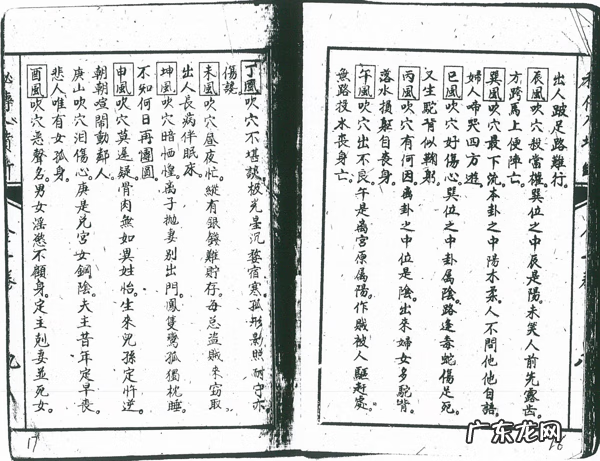 出人跛足路難行。
辰風吹穴殺當權。巽位之中辰是陽。未笑人前先露齒。
才跨馬上使陣亡。
巽風吹穴最下流。本卦之中陽木柔。人不問他他自語。
婦人啼哭四方遊
巳風吹穴好傷心。巽位之中卦屬陰。路逢毒蛇傷足死
又生駝背似鞠躬。
丙風吹穴有何因。離卦之中位是陰。出來婦女多駝背。
落水損軀自喪身。
午風吹穴出不良。午是離宮原屬陽。作賊被人驅赶處。
無路投水喪身亡。
16
丁風吹穴不堪談。極光星沉婺宿寒。孤形影照耐守亦
傷談
未風吹穴晝夜忙。縱有銀錢難貯存。每怨盜賊來窃取
出人長病伴眠床
坤風吹穴暗惶。离子拋妻別出門。鳳隻鸞孤獨枕睡
不知何日再團圓
申風吹穴莫遲疑。骨肉無如異姓怡。生來兒孫定忤逆
朝朝喧鬧動鄰人
庚山吹穴泪傷心。庚是兌宮女鋼陰。夫主昔年定早喪
悲人唯有女孤身。
酉風吹穴惡聲名。男女淫慾不顧身。定主剋妻並死女。
九
17
广东龙网